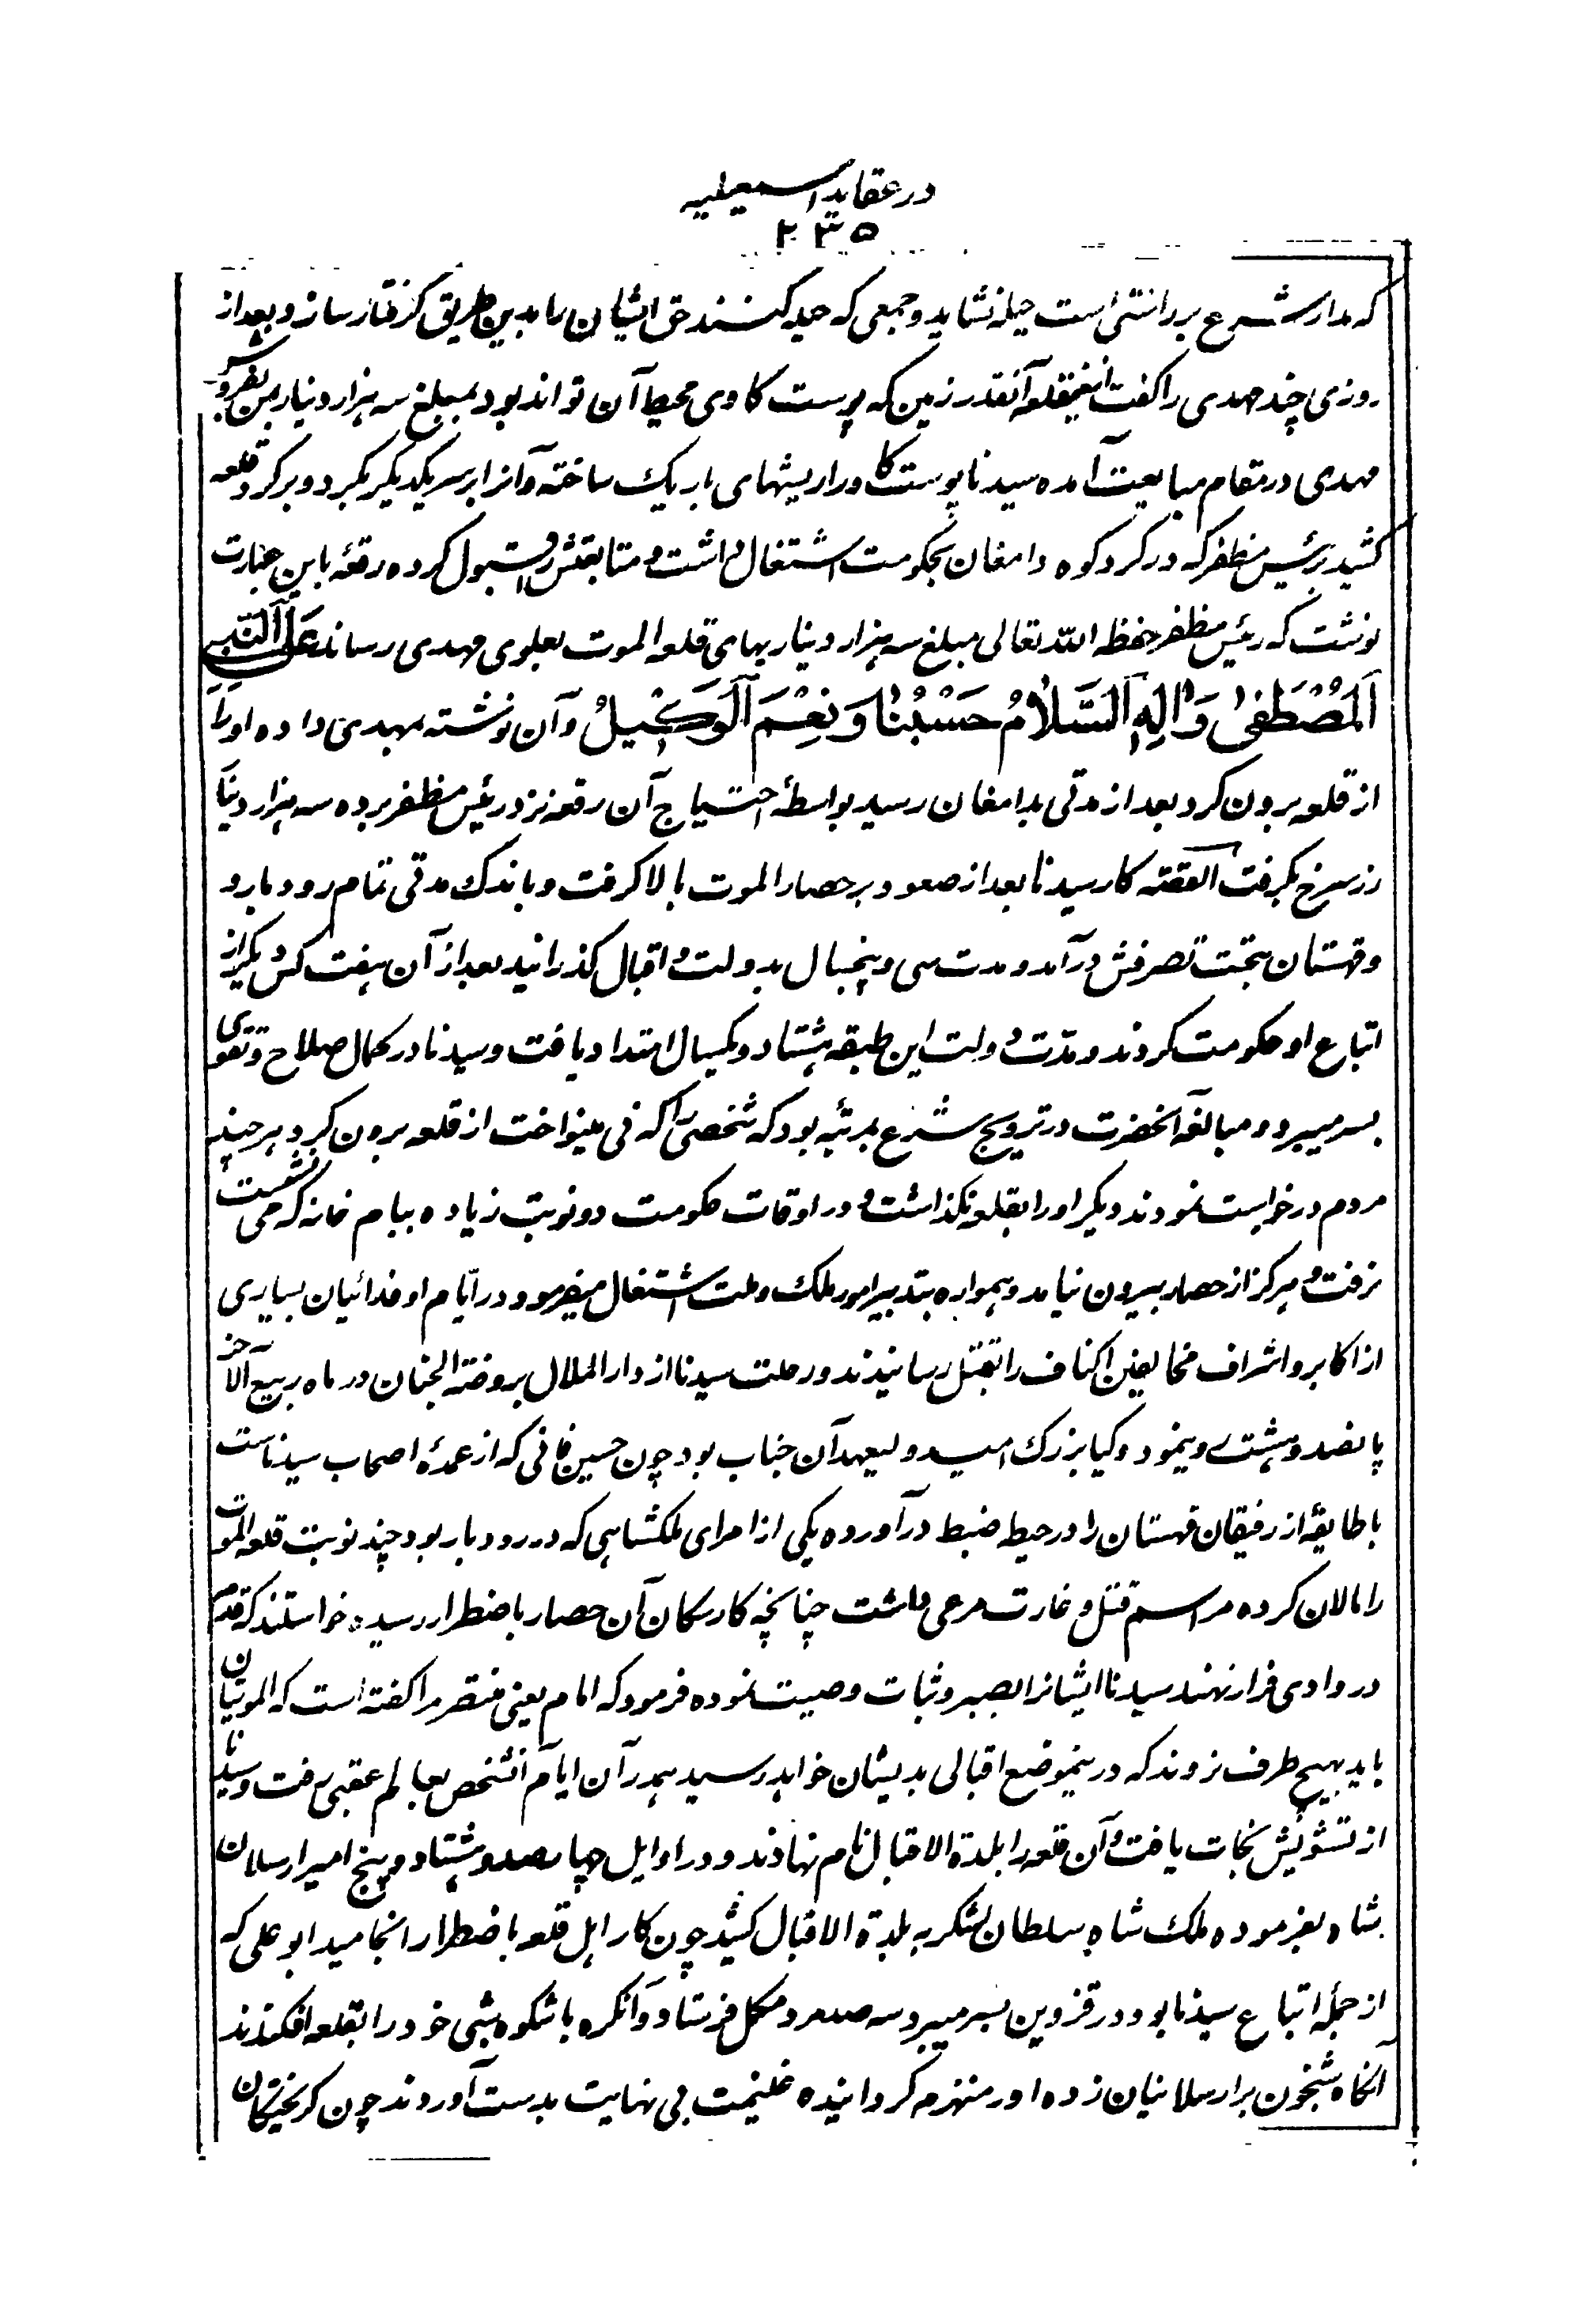 در عقاید اسمعیلیه
۲۳۵
که مدار شرع بر راستی است حیله نشاید و جمعی که حیله کنند حق ایشان را بدین طریق گرفتار سازد و بعد از
روزی چند مهدی را گفت ازینقلعه آنقدر زمین که پوست کاوی محیط آن تواند بود بمبلغ سه هزار دینار بمن بفروش
مهدی در مقام مبایعت آمده سیدنا پوست کاو را ریشهای باریک ساخته و آنرا بر سر یکدیکر بکرد و بر کرد قلعه
کشید برئیس مظفر که در کردکوه دامغان بحکومت اشتغال داشت و متابعتش قبول کرده رقعهٔ باین عبارت
نوشت که رئیس مظفر حفظه الله تعالی مبلغ سه هزار دینار بهای قلعه الموت بعلوی مهدی رساند عَلَی النَّبِی
اَلْمُصْطَفی وَ الِهِ اَلسَّلامُ حَسْبُنا وَ نِعْمَ اَلْوَکیلُ و آن نوشته بمهدی داده او را
از قلعه برون کرد بعد از مدتی بدامغان رسید بواسطهٔ احتیاج آن رقعه نزد رئیس مظفر برده سه هزار دینا
زر سرخ بکرفت القصّه کار سیدنا بعد از صعود بر حصار الموت بالا کرفت و باندک مدتی تمام رودبار و
و قهستان بتحت تصرفش درآمد و مدت سی و پنجسال بدولت و اقبال کذرانید بعد از آن هفت کس دیکر از
اتباع او حکومت کردند و مدّت دولت این طبقه هشتاد و یکسال امتداد یافت و سیدنا در کمال صلاح و تقوی
بسر میبرد و مبالغهٔ آنحضرت در ترویج شرع بمرتبهٔ بود که شخصی را که نی مینواخت از قلعه برون کرد هر چند
مردم درخواست نمودند دیکر او را بقلعه نکذاشت و در اوقات حکومت دو نوبت زیاده ببام خانه که می نشست
نرفت و هرکز از حصار بیرون نیامد و همواره بتدبیر امور ملک و ملت اشتغال میفرمود و در ایّام او فدائیان بسیاری
از اکابر و اشراف مخالفین اکناف را بقتل رسانیدند و رحلت سیدنا از دار الملال بروضة الجنان در ماه ربیع الآخر
پانصد و هشتده وینمود و کیا بزرک امید ولیعهد آن جناب بود چون حسین قاینی که از عمدهٔ اصحاب سیدناست
با طایفهٔ از رفیقان قهستان را در حیطه ضبط درآورده یکی از امرای ملکشاهی که در رودبار بود چند نوبت قلعه الموت
را مالان کرده مراسم قتل و غارت مرعی داشت چنانچه کار سکان آن حصار باضطرار رسیده خواستند که قدم
در وادی فرار نهند سیدنا ایشانرا بصبر و ثبات وصیت نموده فرمود که امام یعنی منتصر مرا کفته است که الموتیان
باید بهیچ طرف نروند که درینموضع اقبالی بدیشان خواهد رسید هم در آن ایام آنشخص بعالم عقبی رفت و سیدنا
از تشویش نجات یافت و آن قلعه را بلدة الاقبال نام نهادند و در اوایل چهارصد و هشتاد و پنج امیر ارسلان
بشاه بفرموده ملک شاه سلطان لشکر به بلدة الاقبال کشید چون کار اهل قلعه باضطرار انجامید ابو علی که
از جملهٔ اتباع سیدنا بود و در قزوین بسر میبرد سه صد مرد مکمل فرستاد و آنکره باشکوه شبی خود را بقلعه افکندند
آنکاه شبخون بر ارسلانیان زده او را منهزم کردانیده غنیمت بی نهایت بدست آوردند چون کریختکان